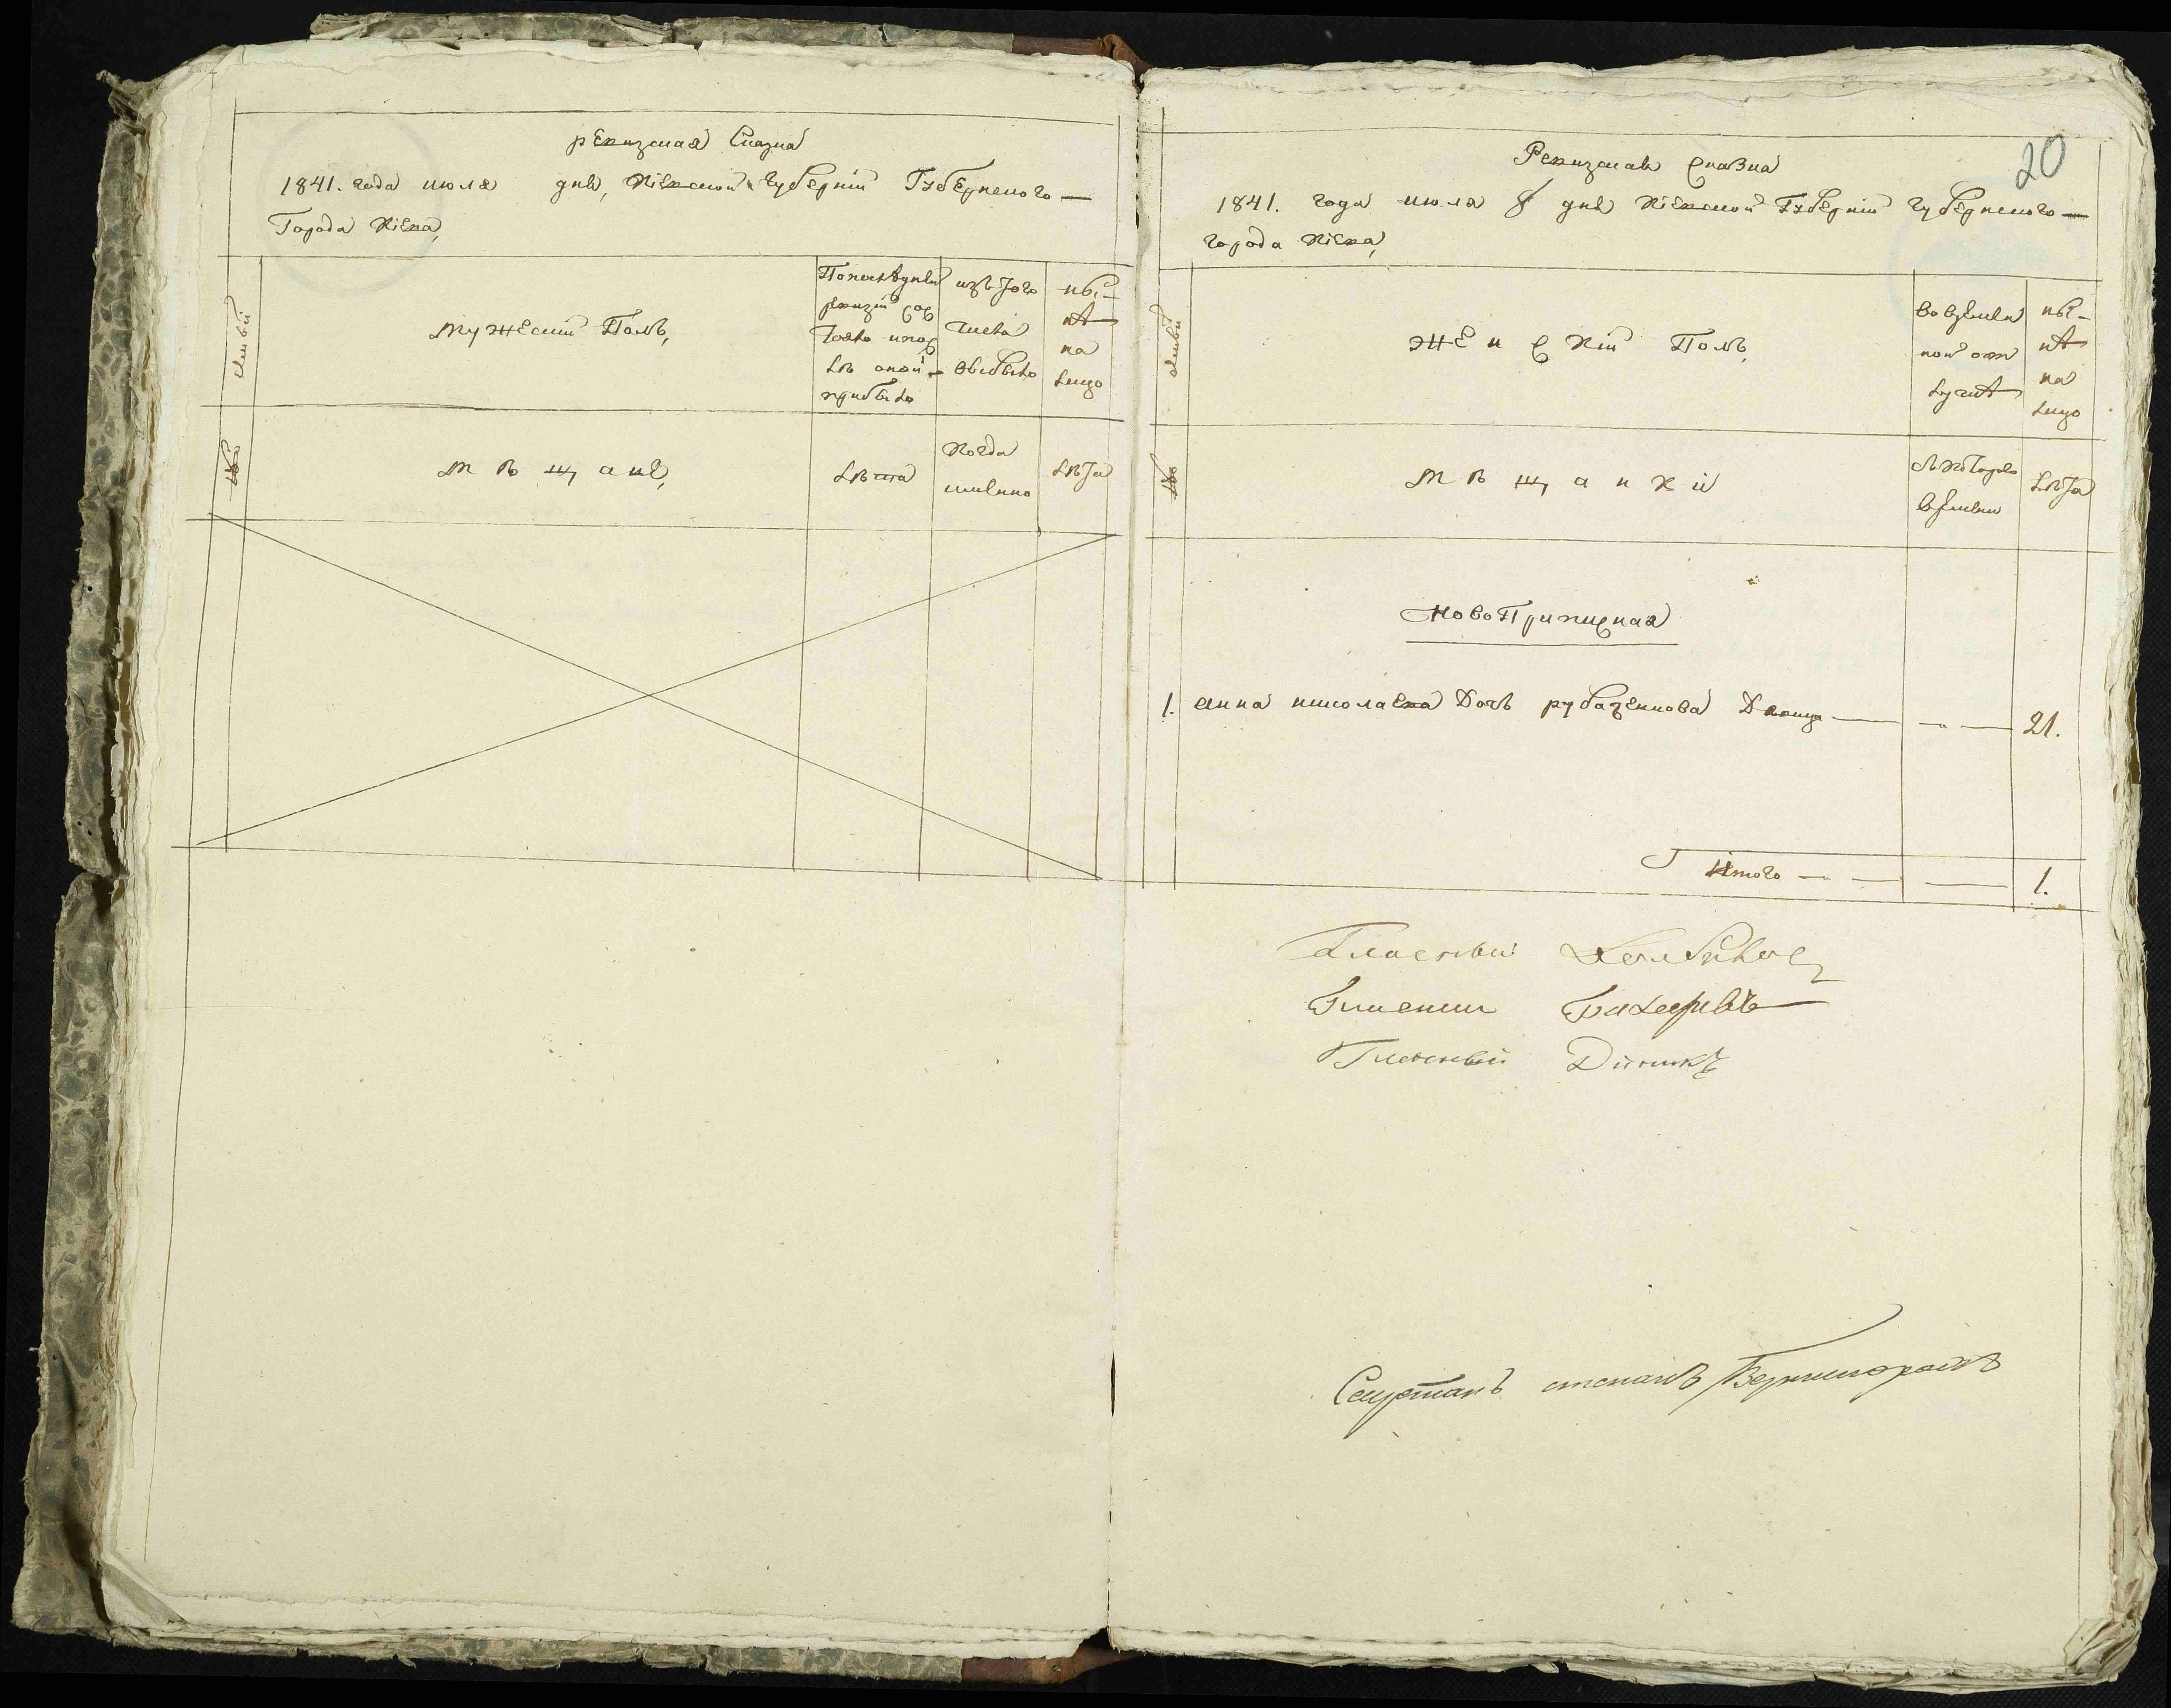 ревизская Сказка
1841. года июля дня, Кіевской Губерніи Губернского
Города Кіева,
семьи
Мужеский Полъ,
По последней
ревизіи со
стояло и по
лѣ оной
прибыло
изъ того
числа
выбыло
ны-
нѣ
на
лицо
№
Мѣщане,
лѣта
Когда
именно
лѣта
20
Ревизская Сказка
1841. года июля 8 дня Кіевской Губерніи Губернского
города Кіева,
семьи
Женскій Полъ,
во времен
ной от
лучке
ны-
нѣ
на
лицо
№
Мѣщанки
Съ котораго
времени
лѣта
Новоприписная
1. Анна николаева Дочь рубаженкова Девица — — 21.
Итого — — — 1.
Гласный
Гласный
степанъ